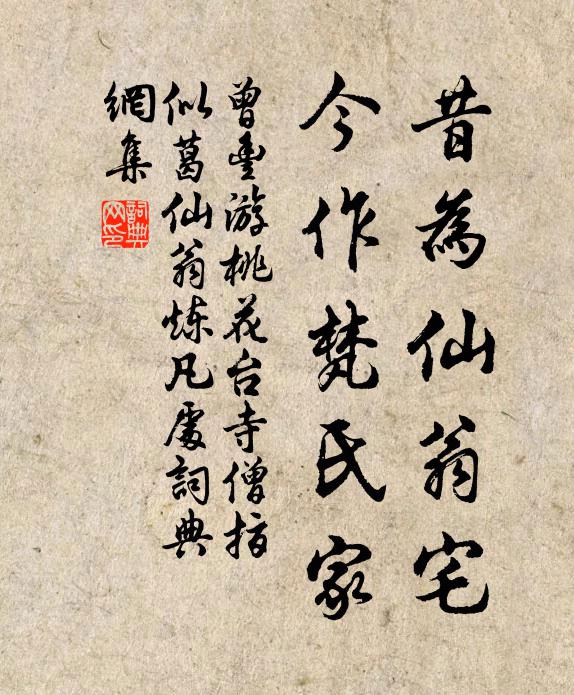 昔為仙翁宅
今作梵氏家
曾豊游桃花台寺僧指
似葛仙翁炼凡處詞典
網集
詞典网印